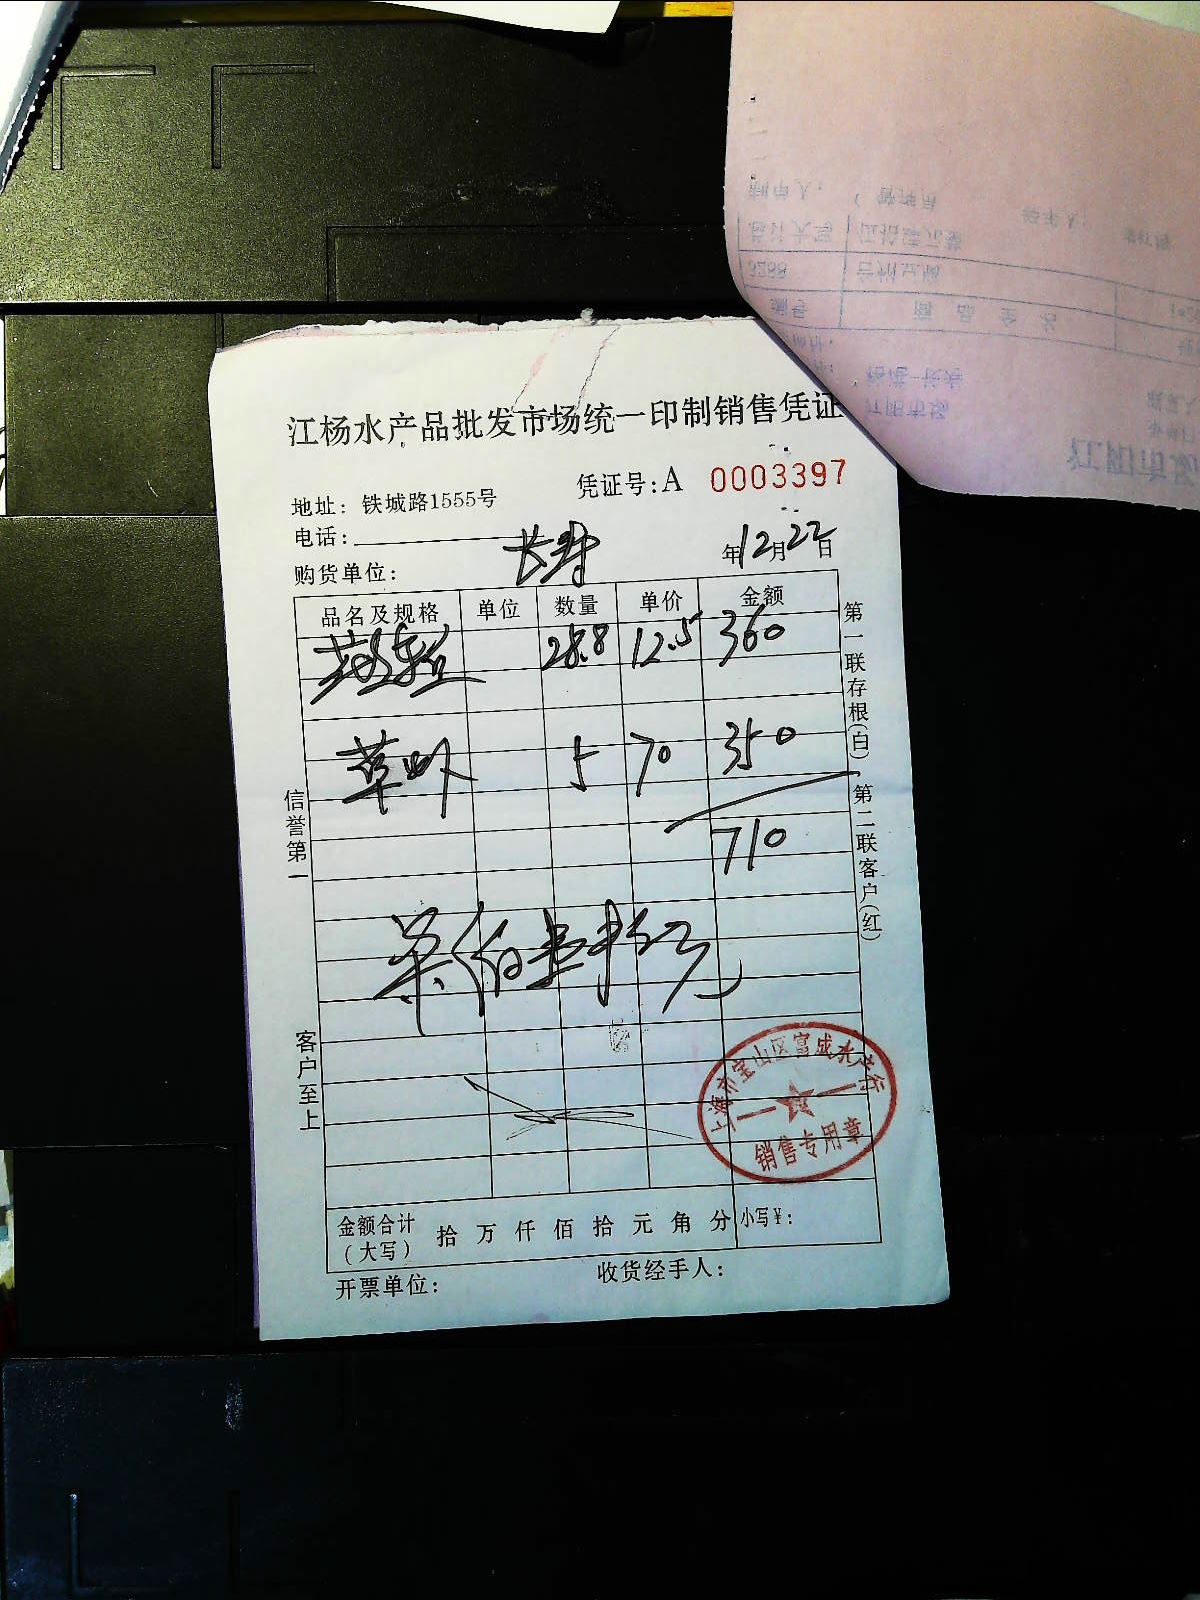 江杨水产品批发市场统一印制销售凭证
凭证号:A 0003397
地址: 铁城路1555号
电话:
购货单位: 长寿
年12月22日
品名及规格 单位 数量 单价 金额
28.8 12.5 360
草虾 5 70 350
710
柒佰壹拾元
信誉第一
客户至上
第一联存根(白) 第二联客户(红)
上海市宝山区富成水产行
销售专用章
金额合计(大写) 拾 万 仟 佰 拾 元 角 分 小写¥:
开票单位: 收货经手人: